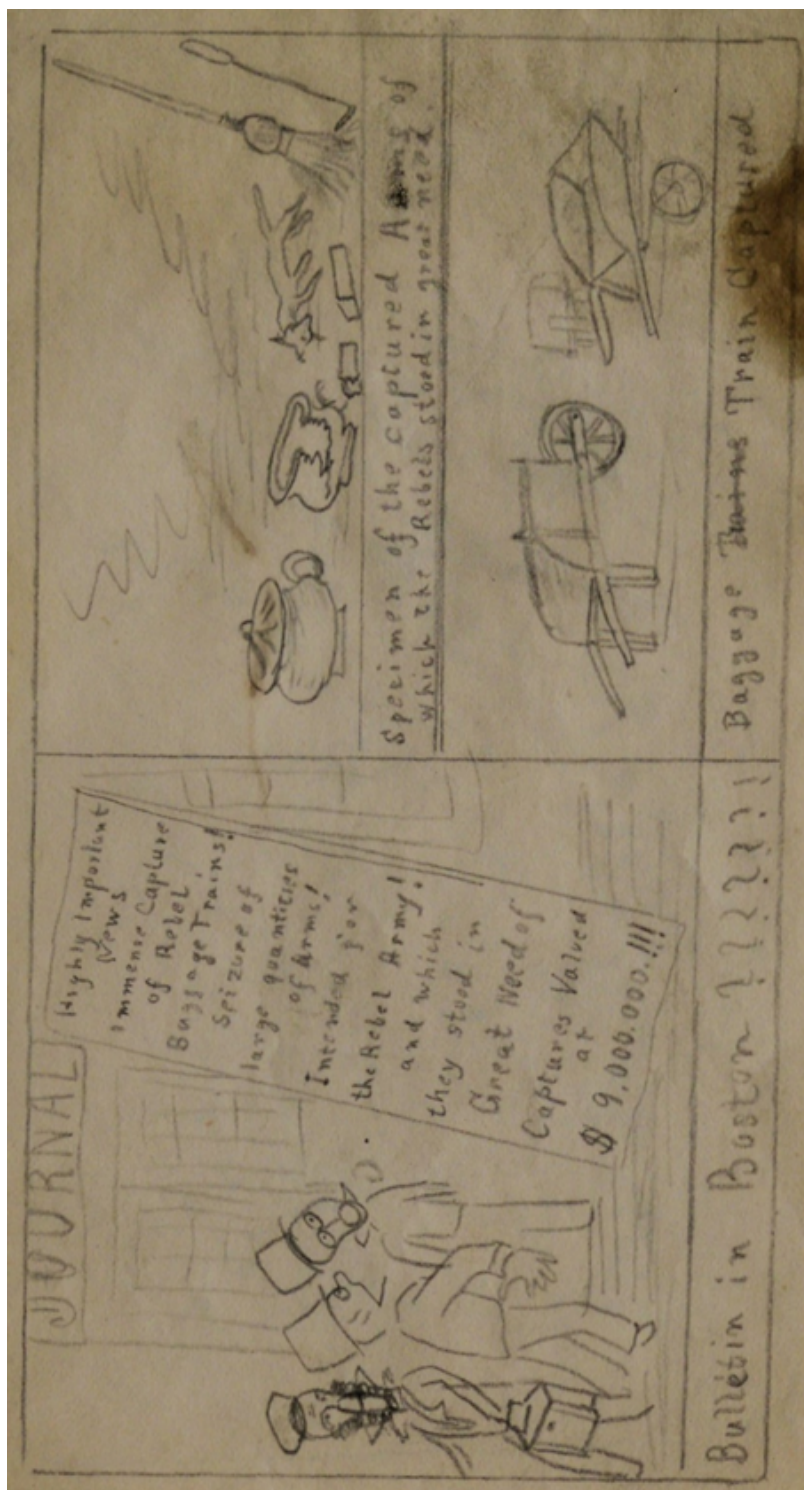 JOURNAL
Highly Important
News
Immense Capture
of Rebel
Baggage Trains!
Seizure of
large quantities
of Arms!
Intended for
the Rebel Army!
and which
they stood in
Great Need of
Captures Valued
at
$ 9.000.000.!!!
Bulletin in Boston ? ? ? ? ? ? !
Specimen of the captured Arms of
which the Rebels stood in great need.
Baggage Trains Train Captured